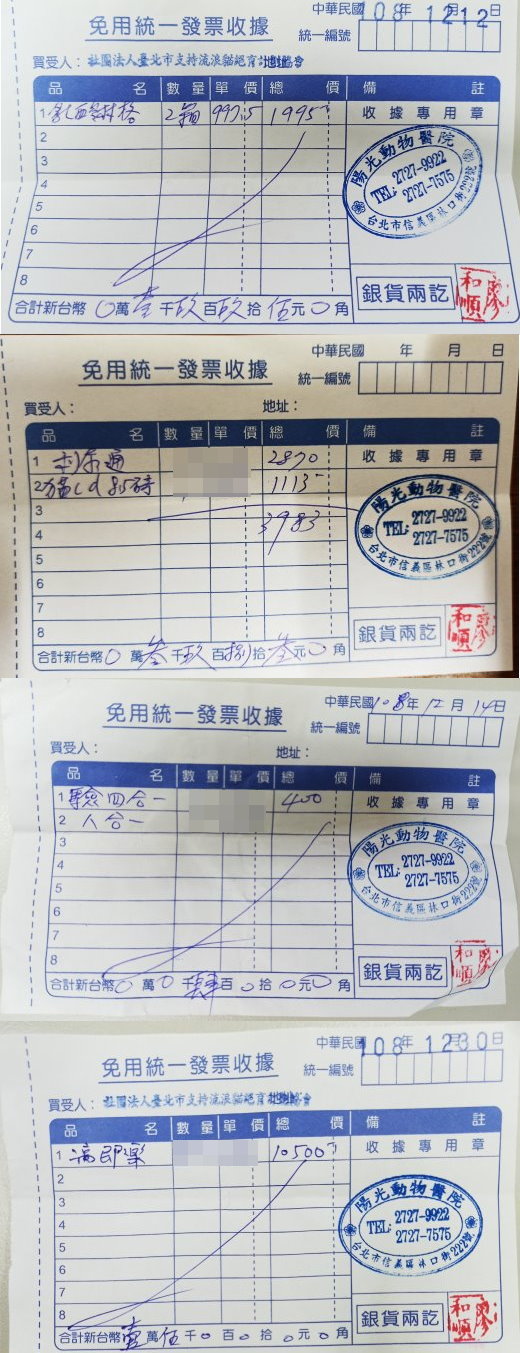 中華民國 108年 12月12日
免用統一發票收據
統一編號
買受人：社團法人臺北市支持流浪貓絕育計劃協會
品 名 數量 單價 總 價 備 註
1 997.5 1995 收據專用章
2
3
4
5
6
7
8
陽光動物醫院
TEL: 2727-9922
2727-7575
台北市信義區林口街222號
銀貨兩訖
合計新台幣 0萬壹千玖百玖拾伍元0角
中華民國 年 月 日
免用統一發票收據
統一編號
買受人： 地址：
品 名 數量 單價 總 價 備 註
1 2870 收據專用章
2 1113
3 3983
4
5
6
7
8
陽光動物醫院
TEL: 2727-9922
2727-7575
台北市信義區林口街222號
銀貨兩訖
合計新台幣 0萬叁千玖百捌拾叁元0角
中華民國108年12月14日
免用統一發票收據
統一編號
買受人： 地址：
品 名 數量 單價 總 價 備 註
1 驗四合一 400 收據專用章
2 八合一
3
4
5
6
7
8
陽光動物醫院
TEL: 2727-9922
2727-7575
台北市信義區林口街222號
銀貨兩訖
合計新台幣0萬0千肆百0拾0元0角
中華民國 108年 12月30日
免用統一發票收據
統一編號
買受人：社團法人臺北市支持流浪貓絕育計劃協會
品 名 數量 單價 總 價 備 註
1 滴即樂 10500 收據專用章
2
3
4
5
6
7
8
陽光動物醫院
TEL: 2727-9922
2727-7575
台北市信義區林口街222號
銀貨兩訖
合計新台幣 壹萬伍千0百0拾0元0角